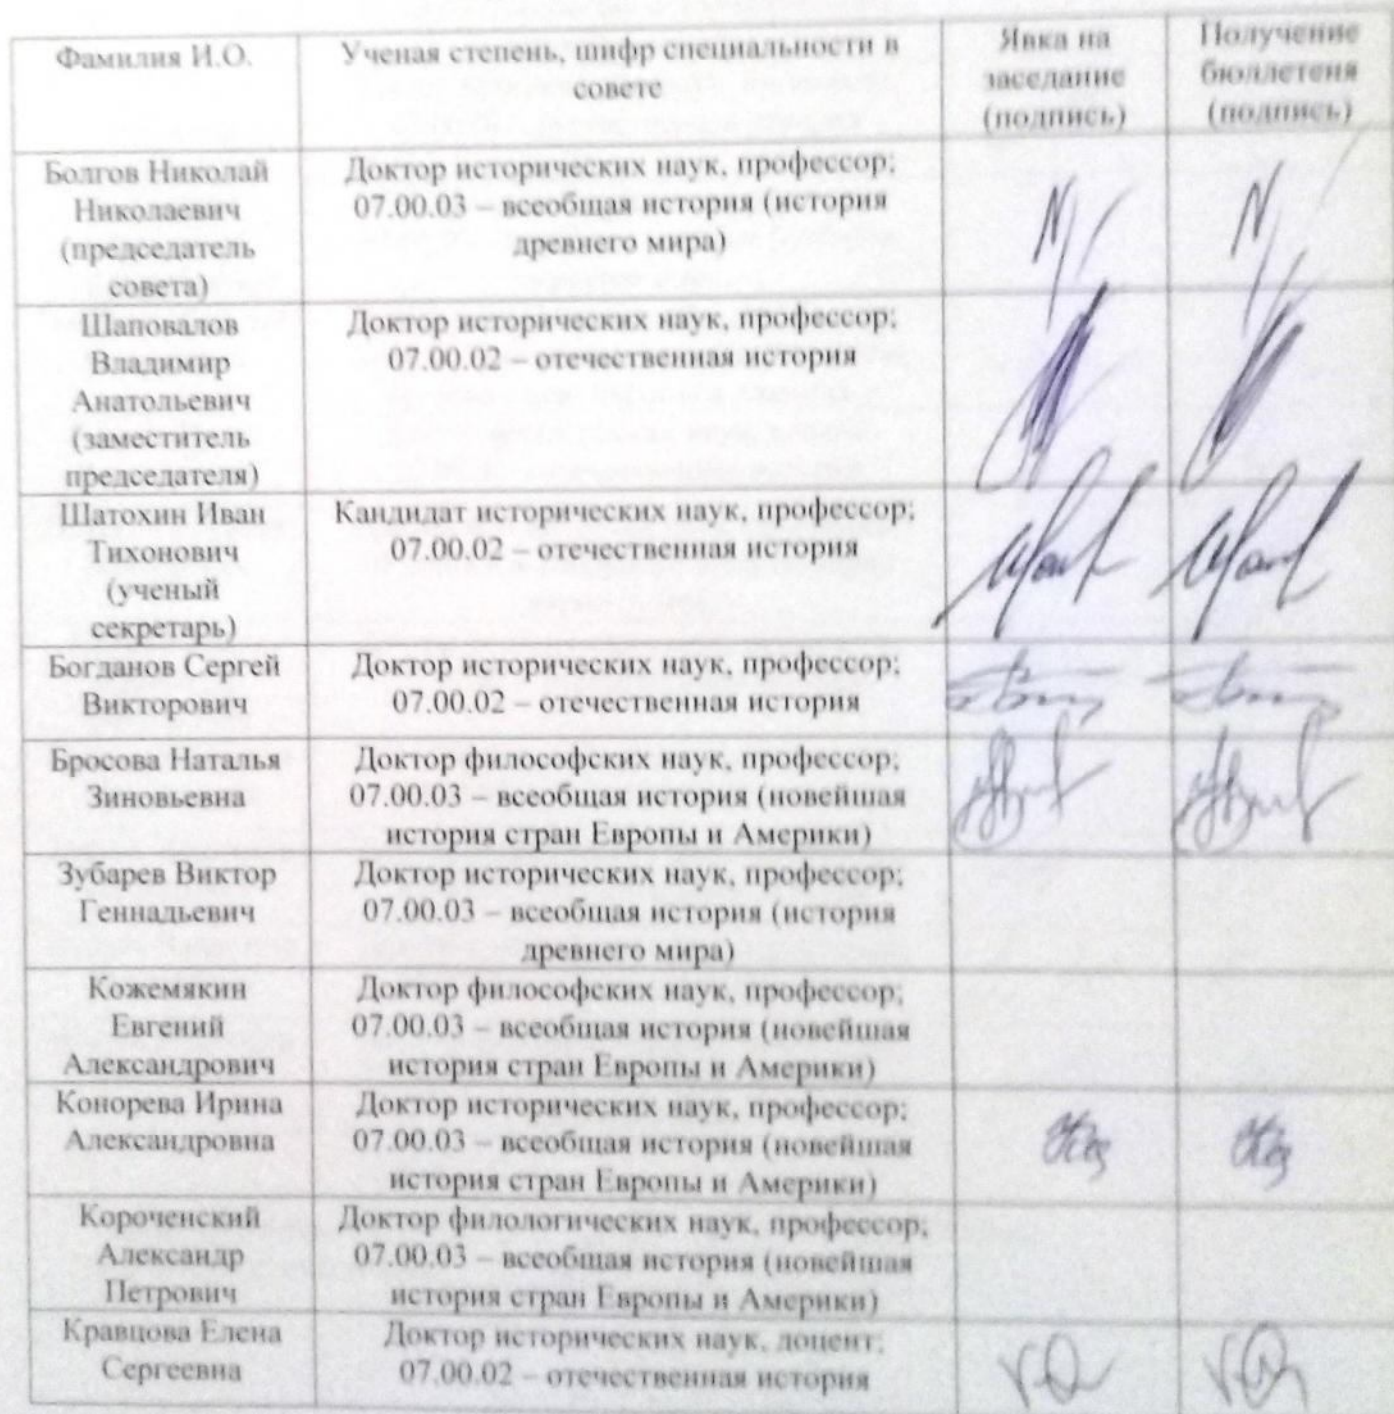 Фамилия И.О.
Ученая степень, шифр специальности в
совете
Явка на
заседание
(подпись)
Получение
бюллетеня
(подпись)
Болгов Николай
Николаевич
(председатель
совета)
Доктор исторических наук, профессор;
07.00.03 – всеобщая история (история
древнего мира)
Шаповалов
Владимир
Анатольевич
(заместитель
председателя)
Доктор исторических наук, профессор;
07.00.02 – отечественная история
Шатохин Иван
Тихонович
(ученый
секретарь)
Кандидат исторических наук, профессор;
07.00.02 – отечественная история
Богданов Сергей
Викторович
Доктор исторических наук, профессор;
07.00.02 – отечественная история
Бросова Наталья
Зиновьевна
Доктор философских наук, профессор;
07.00.03 – всеобщая история (новейшая
история стран Европы и Америки)
Зубарев Виктор
Геннадьевич
Доктор исторических наук, профессор;
07.00.03 – всеобщая история (история
древнего мира)
Кожемякин
Евгений
Александрович
Доктор философских наук, профессор;
07.00.03 – всеобщая история (новейшая
история стран Европы и Америки)
Конорева Ирина
Александровна
Доктор исторических наук, профессор;
07.00.03 – всеобщая история (новейшая
история стран Европы и Америки)
Короченский
Александр
Петрович
Доктор филологических наук, профессор;
07.00.03 – всеобщая история (новейшая
история стран Европы и Америки)
Кравцова Елена
Сергеевна
Доктор исторических наук, доцент;
07.00.02 – отечественная история